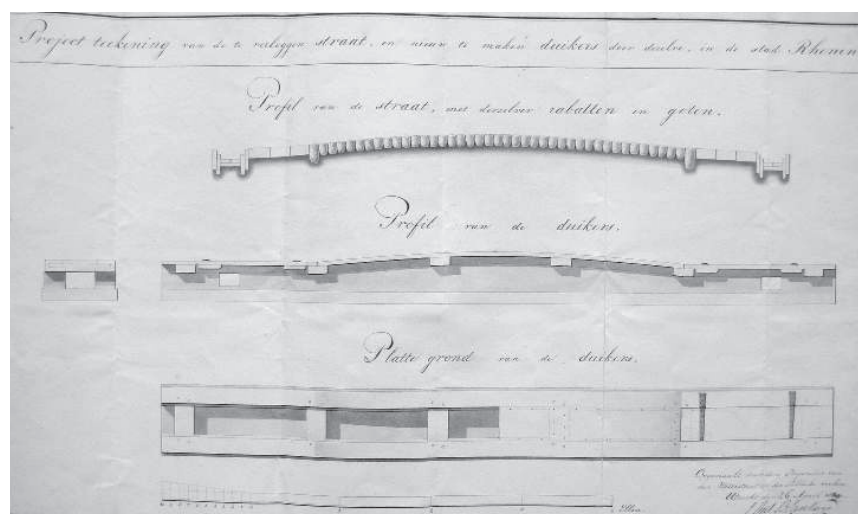 Project teekening van de te verleggen straat, en nieuw te maken duikers door dezelve, in de stad Rhenen
Profil van de straat, met derzelver rabatten en goten.
Profil van de duikers.
Platte grond van de duikers.
Ellen.
Utrecht den 26 April